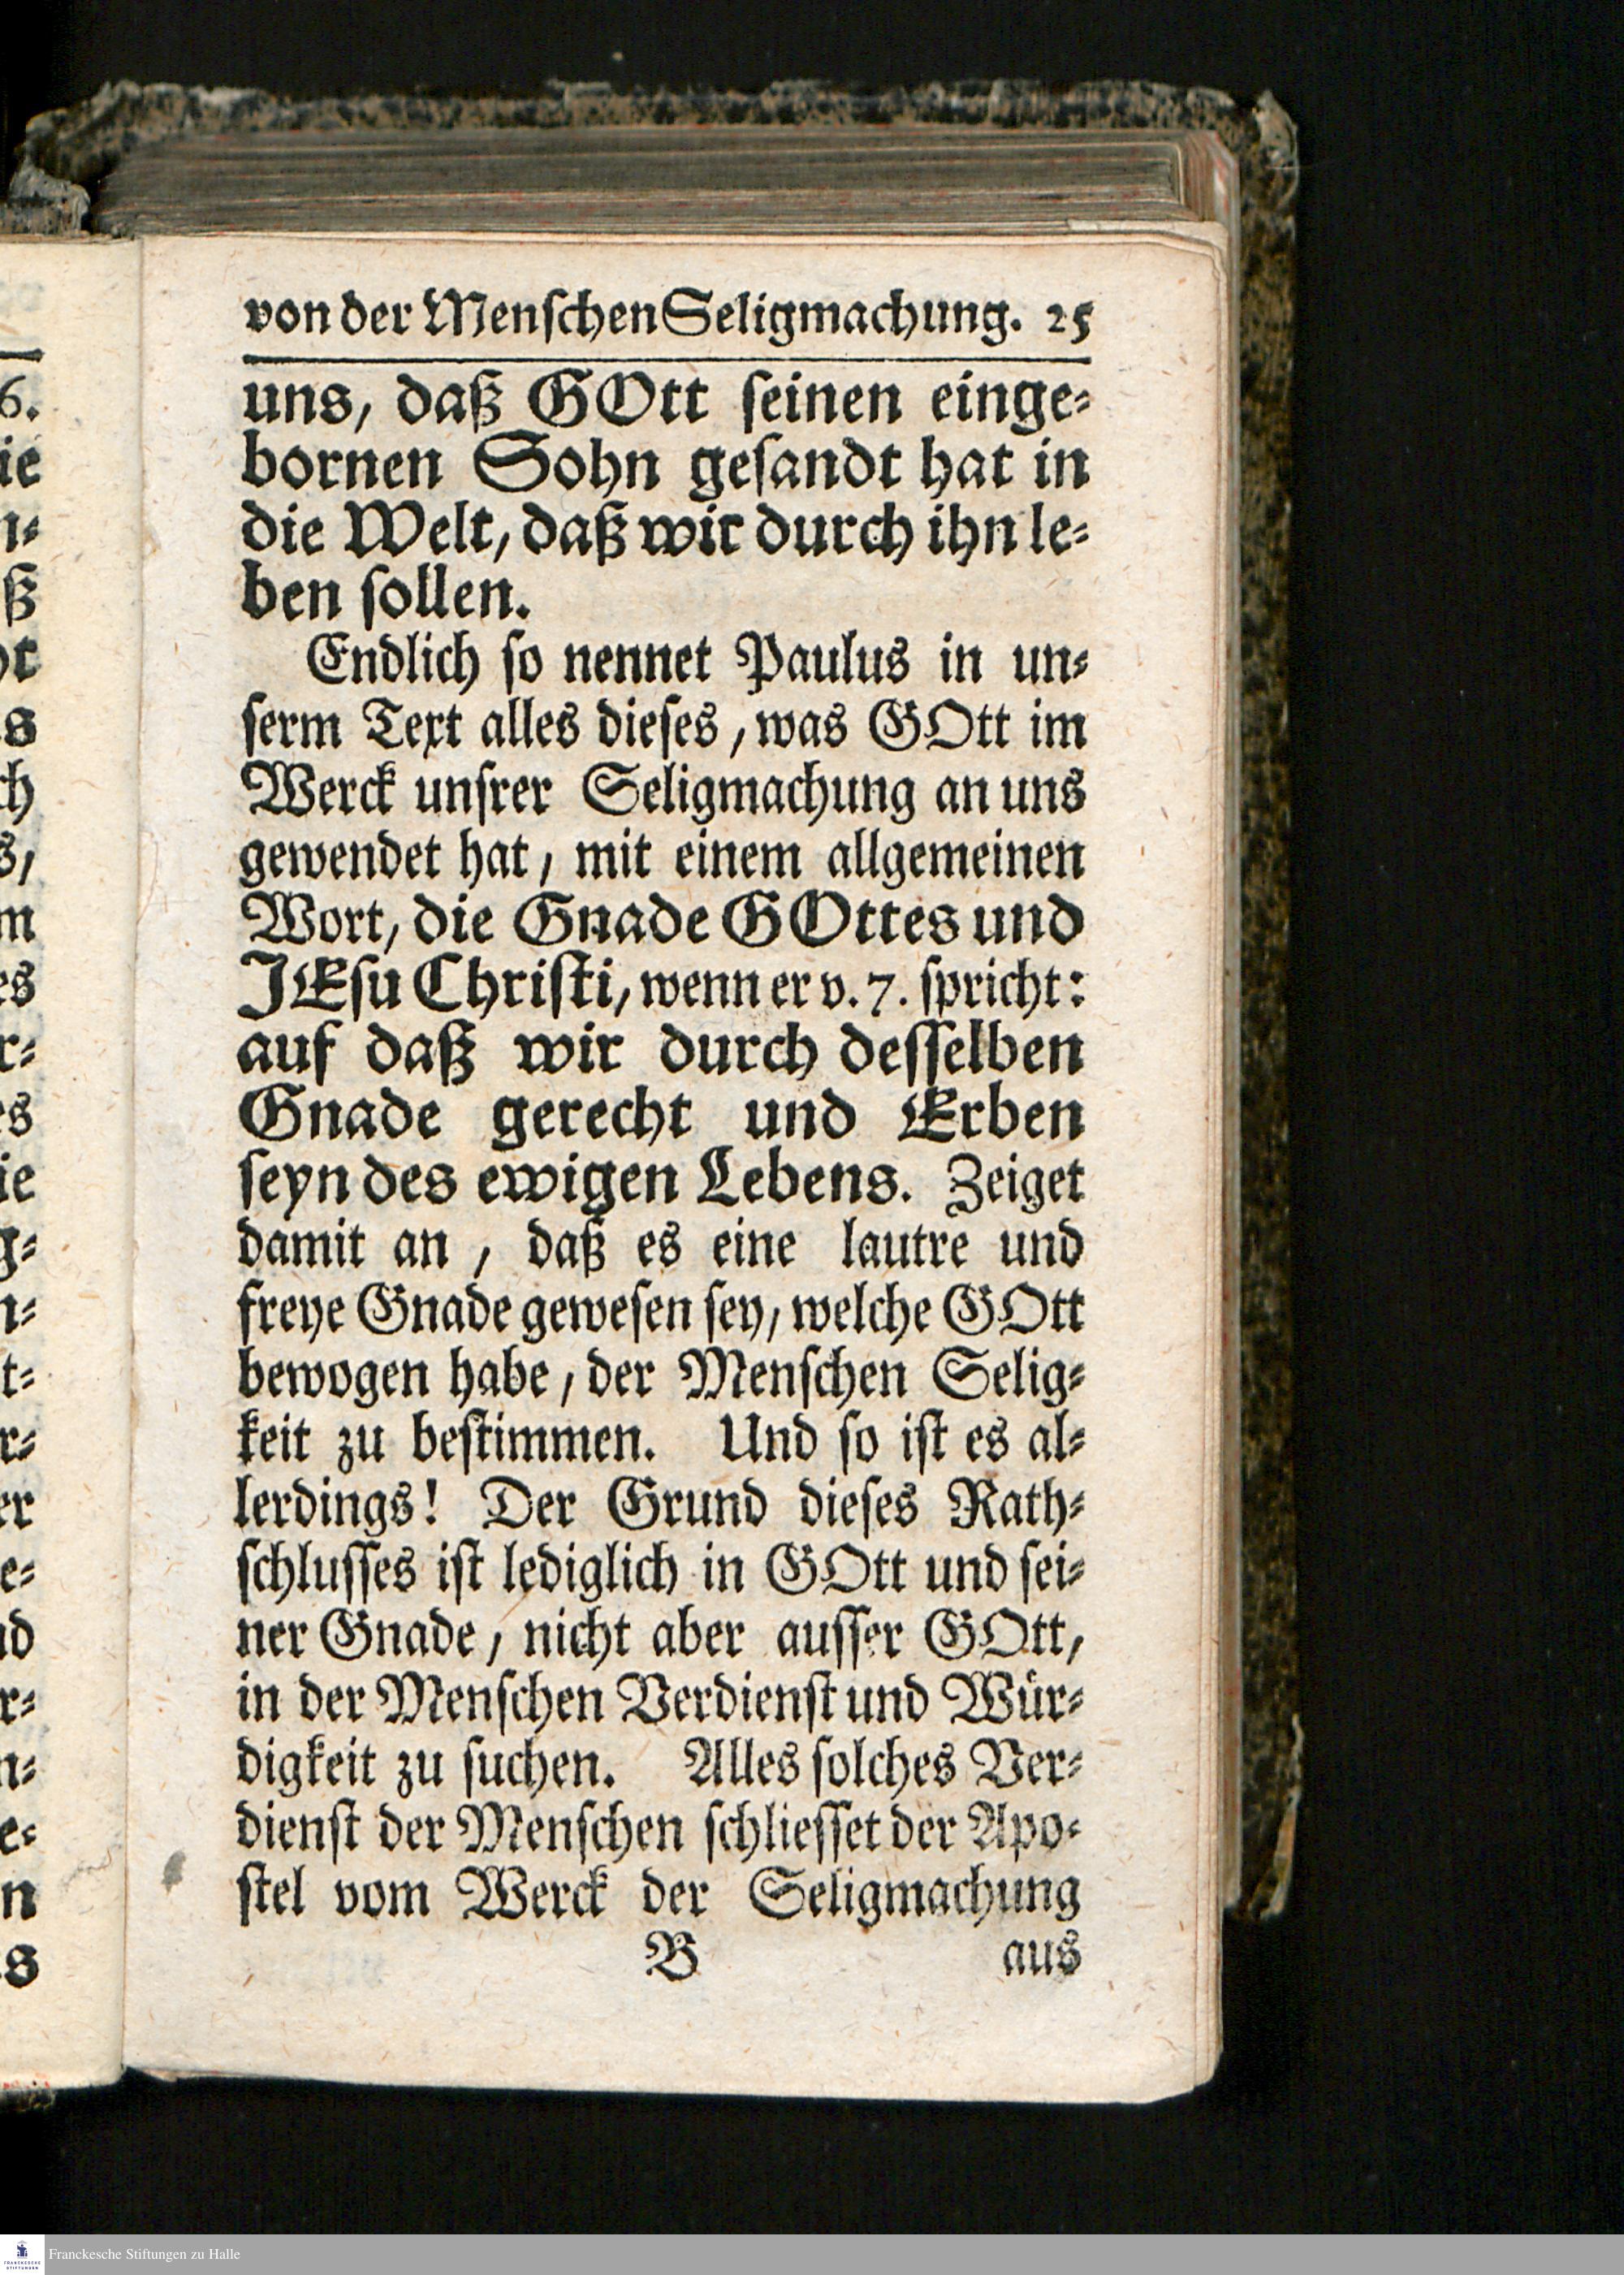 von der Menschen Seligmachung. 25
uns, daß GOtt seinen einge-
bornen Sohn gesandt hat in
die Welt, daß wir durch ihn le-
ben sollen.
Endlich so nennet Paulus in un-
serm Text alles dieses, was GOtt im
Werck unsrer Seligmachung an uns
gewendet hat, mit einem allgemeinen
Wort, die Gnade GOttes und
JEsu Christi, wenn er v. 7. spricht:
auf daß wir durch desselben
Gnade gerecht und Erben
seyn des ewigen Lebens. Zeiget
damit an, daß es eine lautre und
freye Gnade gewesen sey, welche GOtt
bewogen habe, der Menschen Selig-
keit zu bestimmen. Und so ist es al-
lerdings! Der Grund dieses Rath-
schlusses ist lediglich in GOtt und sei-
ner Gnade, nicht aber ausser GOtt,
in der Menschen Verdienst und Wür-
digkeit zu suchen. Alles solches Ver-
dienst der Menschen schliesset der Apo-
stel vom Werck der Seligmachung
B aus
Franckesche Stiftungen zu Halle